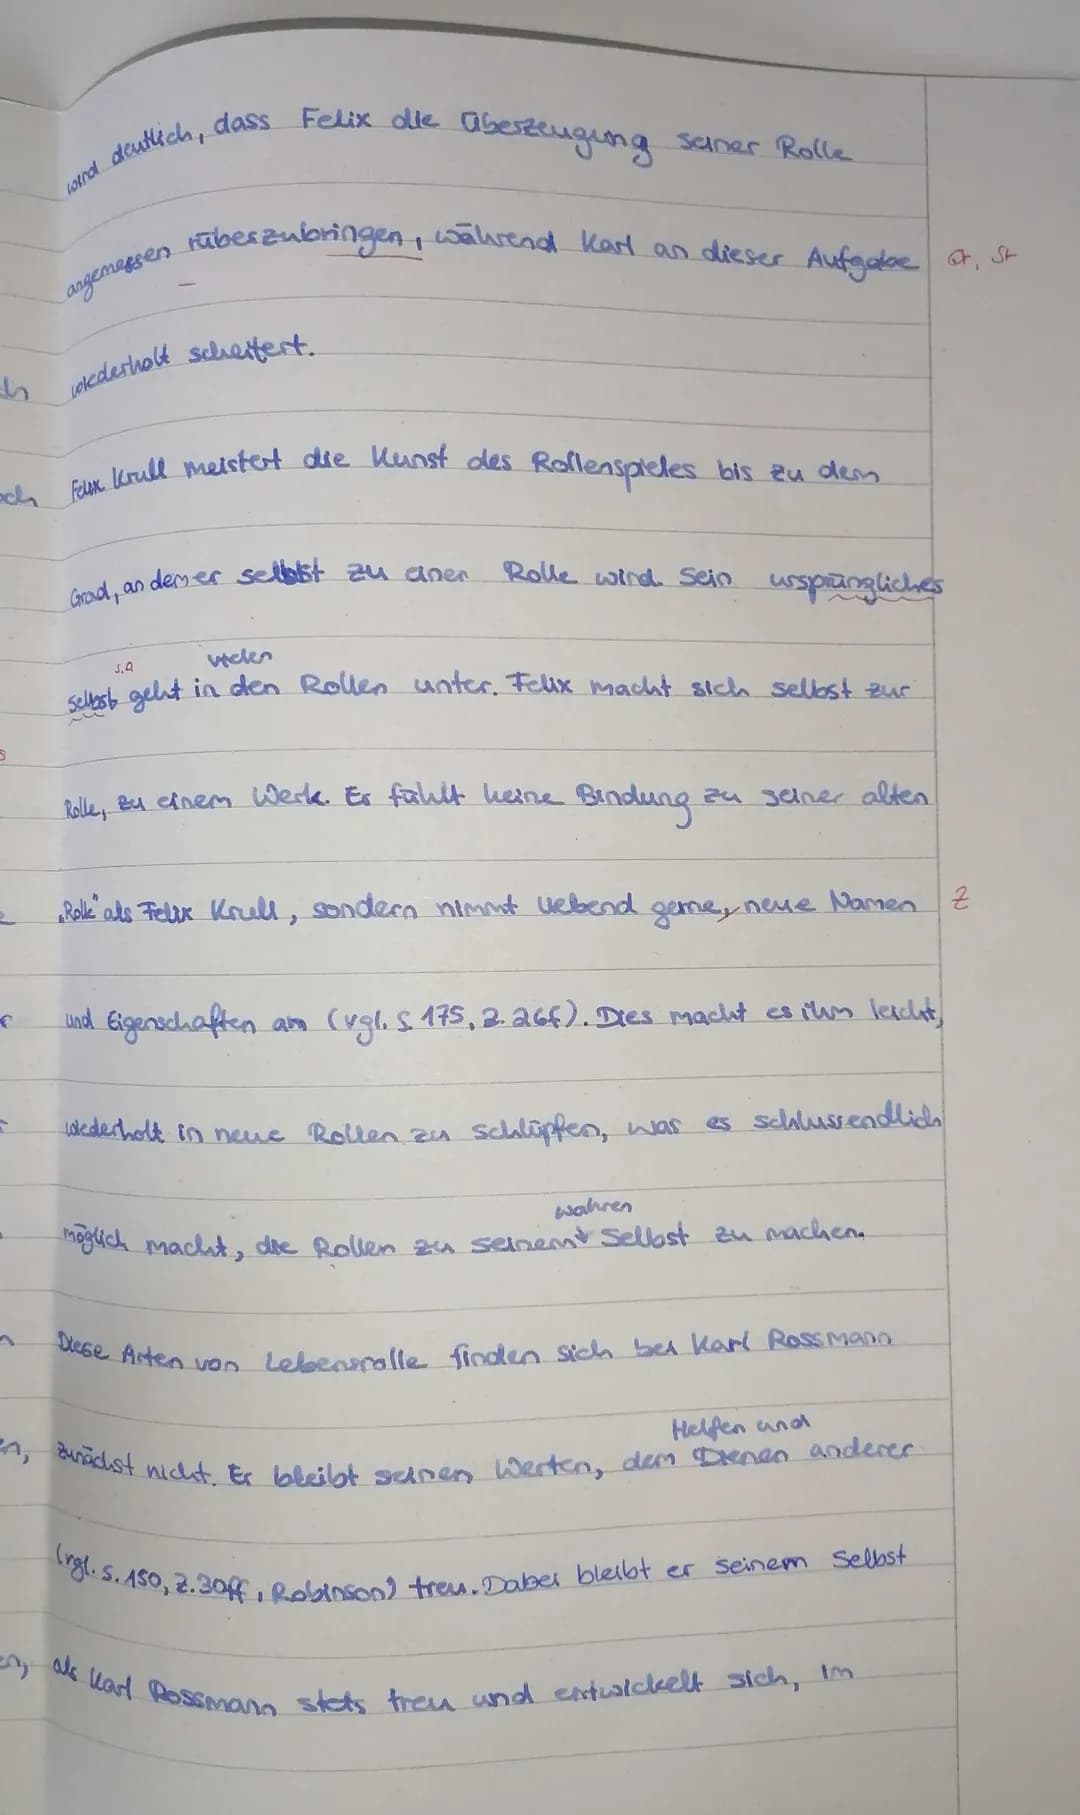 wird deutlich, dass Felix die Überzeugung seiner Rolle
angemessen rüberzubringen, während Karl an dieser Aufgabe
Gr, St
wiederholt scheitert.
ch
Felix Krull meistert die Kunst des Rollenspieles bis zu dem
och
Grad, an dem er selbst zu einer Rolle wird. Sein ursprüngliches
s.o. vielen
selbst geht in den Rollen unter. Felix macht sich selbst zur
s
Rolle, zu einem Werk. Er fühlt keine Bindung zu seiner alten
„Rolle" als Felix Krull, sondern nimmt liebend gerne, neue Namen
Z
und Eigenschaften an (vgl. S. 175, Z. 26f). Dies macht es ihm leicht,
wiederholt in neue Rollen zu schlüpfen, was es schlussendlich
wahren
möglich macht, die Rollen zu seinem Selbst zu machen.
Diese Arten von Lebensrolle finden sich bei Karl Rossmann
Helfen und
en, zunächst nicht. Er bleibt seinen Werten, dem Dienen anderer
(vgl. S. 150, Z. 30ff, Robinson) treu. Dabei bleibt er seinem Selbst
en, als Karl Rossmann stets treu und entwickelt sich, im